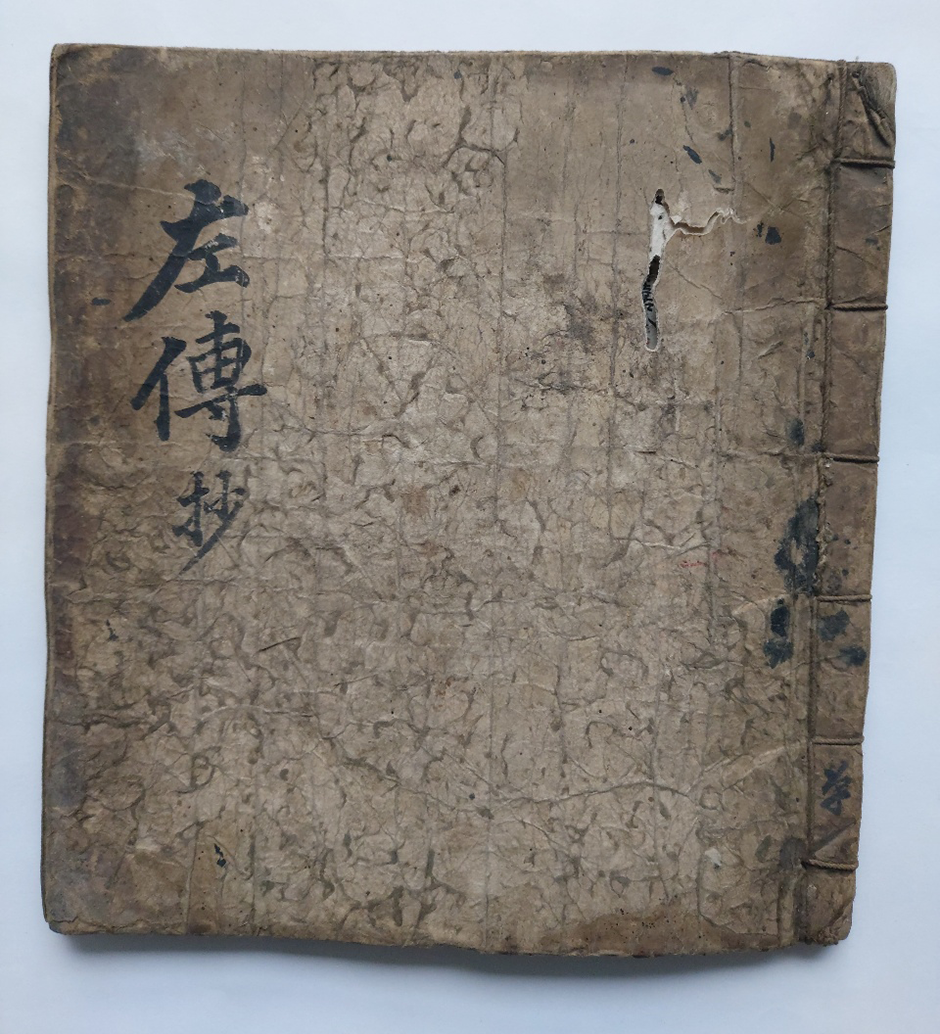 左傳抄